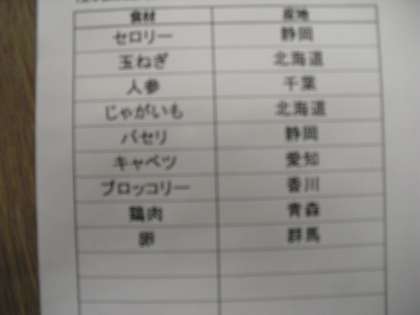 食材 産地
セロリー 静岡
玉ねぎ 北海道
人参 千葉
じゃがいも 北海道
パセリ 静岡
キャベツ 愛知
ブロッコリー 香川
鶏肉 青森
卵 群馬